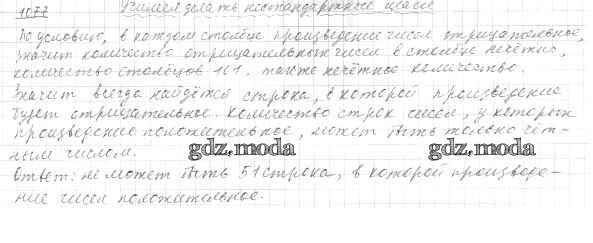 1077 Учимся делать нестандартные шаги
По условию, в каждом столбце произведение чисел отрицательное,
значит количество отрицательных чисел в столбце нечётно,
количество столбцов 101. также нечётное количество.
Значит всегда найдётся строка, в которой произведение
будет отрицательное. Количество строк чисел, у которых
произведение положительное, может быть только чёт-
ным числом.
gdz.moda gdz.moda
Ответ: не может быть 51 строка, в которой произведе-
ние чисел положительное.